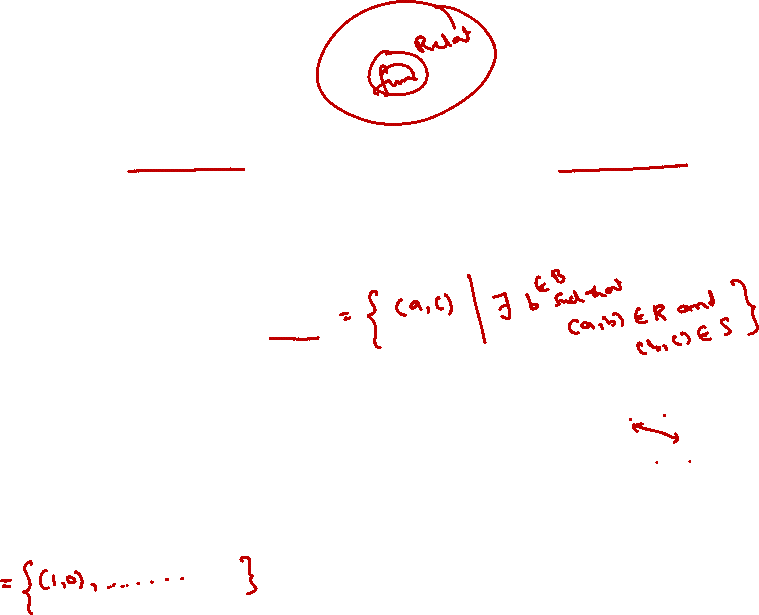 Relat
fun
= { (a,c) | ∃ b ∈B such that
(a,b) ∈ R and
(b,c) ∈ S }
= {(1,0), ........ }